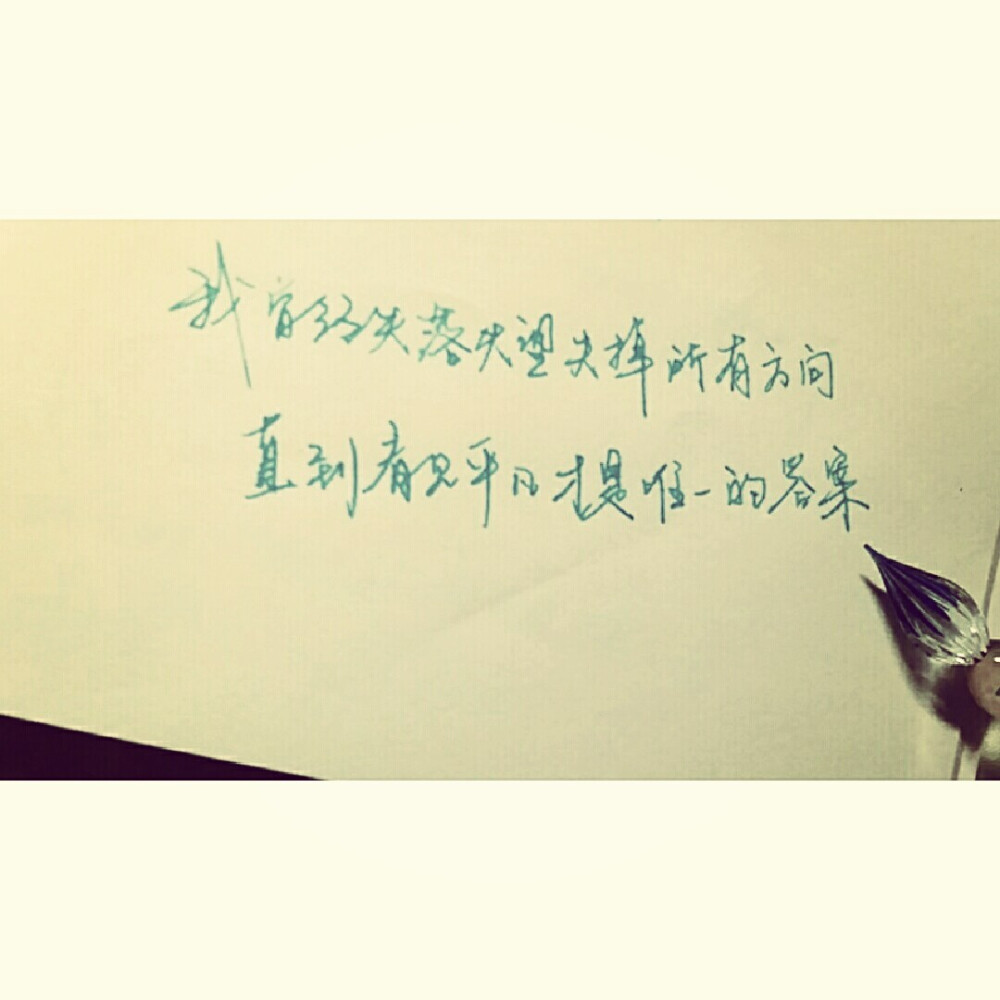 我曾经失落失望失掉所有方向
直到看见平凡才是唯一的答案